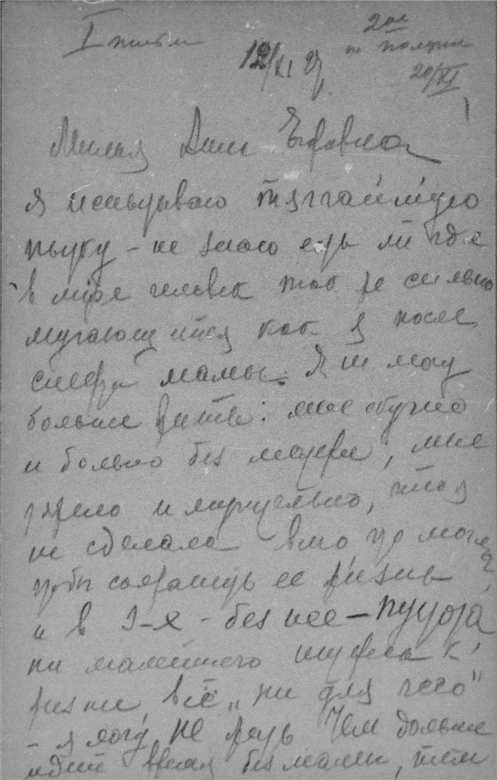 I письмо
12/XI 27
2ое
по
20/XI
Милая Анна Ефовна
я испытываю тягчайшую
муку – не знаю есть ли где
в мире человек так же сильно
мучающийся как я после
смерти мамы. Я не могу
больше жить: мне скучно
и больно без матери, мне
тяжело и мучительно, что я
не сделала всего, что могла,
чтобы сохранить ее жизнь
и в 3-х – без нее – пустота
ни малейшего интереса к
жизни, всё „ни для чего"
– я могу не жить Чем дольше
идет время без мамы, тем